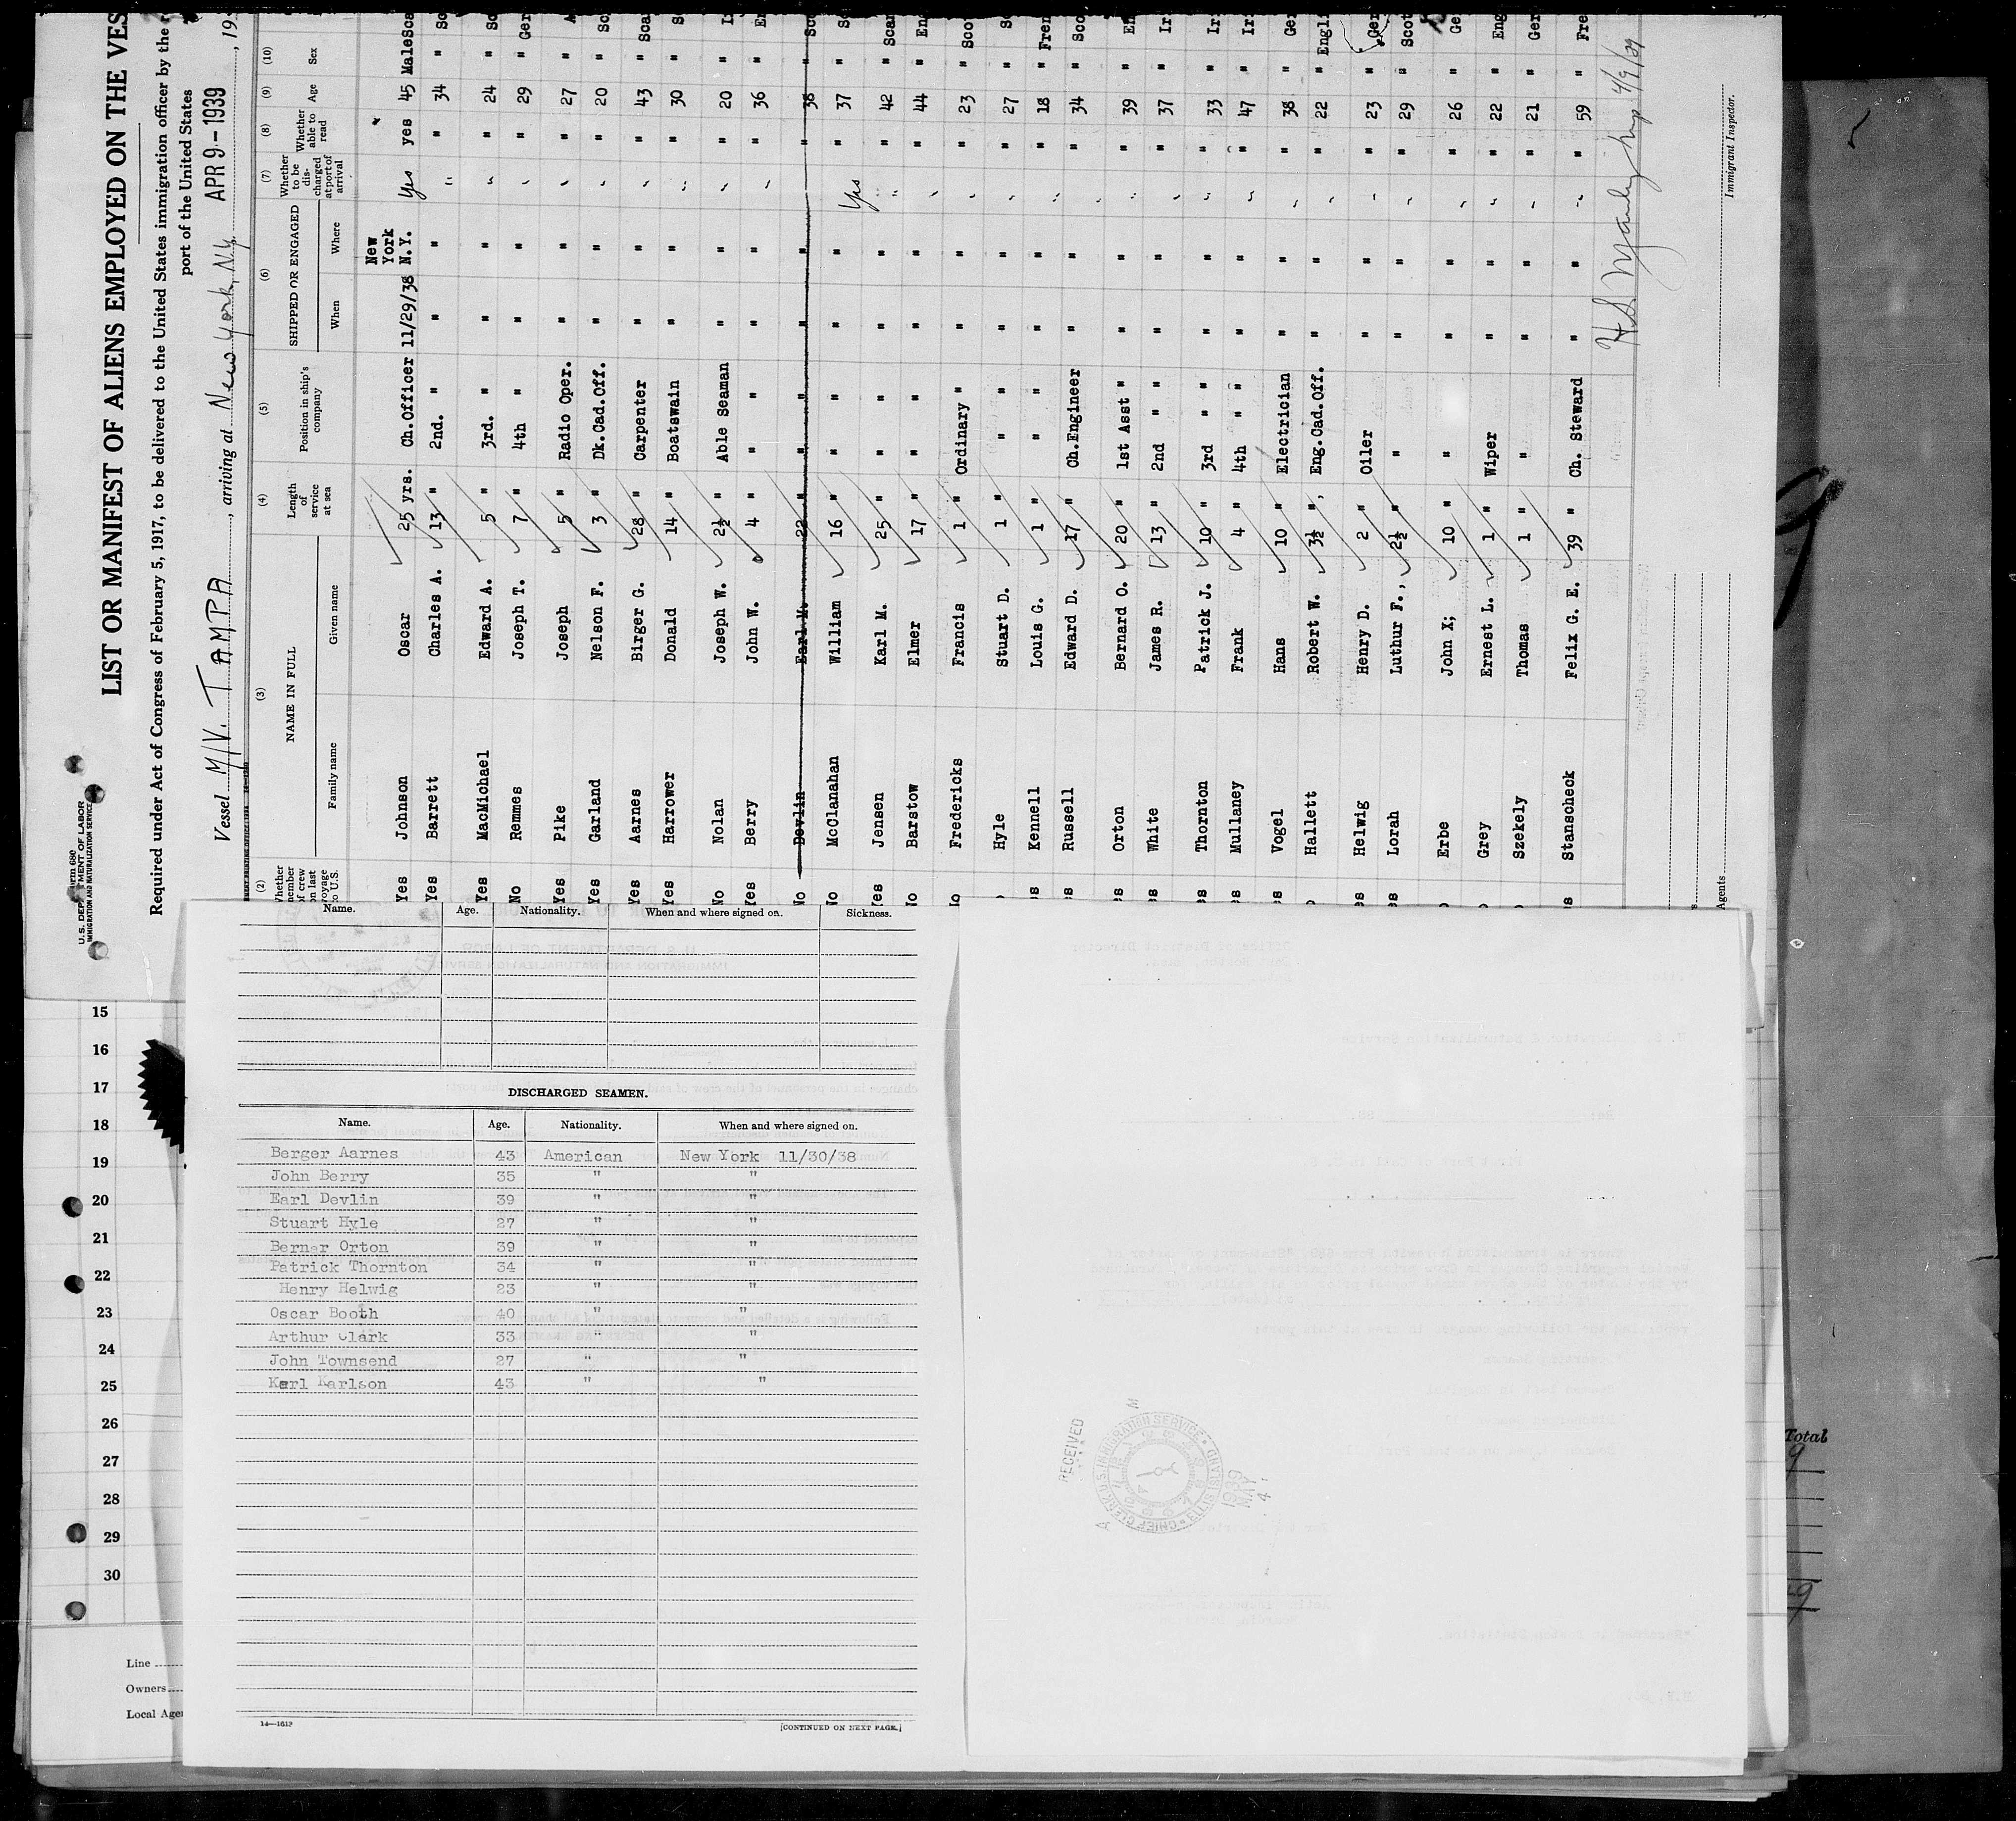 LIST OR MANIFEST OF ALIENS EMPLOYED ON THE VES
Required under Act of Congress of February 5, 1917, to be delivered to the United States immigration officer by the
port of the United States
Vessel M/V. TAMPA, arriving at New York, N.Y. APR 9-1939, 19
U. S. DEPARTMENT OF LABOR
IMMIGRATION AND NATURALIZATION SERVICE
(2) (3) (4) (5) (6) (7) (8) (9) (10)
NAME IN FULL
Family name Given name
Length of service at sea
Position in ship's company
SHIPPED OR ENGAGED
When Where
Whether to be discharged at port of arrival
Whether able to read
Age
Sex
Yes Johnson Oscar 25 yrs. Ch.Officer 11/29/38 New York N.Y. Yes yes 45 Male Sca
Yes Barrett Charles A. 13 " 2nd. " " " " " 34 " Sc
Yes MacMichael Edward A. 5 " 3rd. " " " " " 24 " Sc
No Remmes Joseph T. 7 " 4th " " " " " 29 " Ger
Yes Pike Joseph 5 " Radio Oper. " " " " 27 " A
Yes Garland Nelson F. 3 " Dk.Cad.Off. " " " " 20 " Sc
Yes Aarnes Birger G. 28 " Carpenter " " " " 43 " Sca
Yes Harrower Donald 14 " Boatswain " " " " 30 " S
No Nolan Joseph W. 2½ " Able Seaman " " " " 20 " I
Yes Berry John W. 4 " " " " " " " 36 " E
No Devlin Earl M. 22 " " " " " " 38 " Sco
No McClanahan William 16 " " " " " Yes " 37 " S
Yes Jensen Karl M. 25 " " " " " " " 42 " Scan
No Barstow Elmer 17 " " " " " " " 44 " En
No Fredericks Francis 1 " Ordinary " " " " " 23 " Sco
Hyle Stuart D. 1 " " " " " " " 27 " S
es Kennell Louis G. 1 " " " " " " " 18 " Fren
es Russell Edward D. 17 " Ch.Engineer " " " " 34 " Sco
es Orton Bernard O. 20 " 1st Asst " " " " " 39 " E
es White James R. 13 " 2nd " " " " " " 37 " Ir
es Thornton Patrick J. 10 " 3rd " " " " " " 33 " Ir
es Mullaney Frank 4 " 4th " " " " " " 47 " Ir
es Vogel Hans 10 " Electrician " " " " 38 " Ge
Hallett Robert W. 3½ ", Eng.Cad.Off. " " " " 22 " Engli
es Helwig Henry D. 2 " Oiler " " " " 23 " Ger
es Lorah Luthur F., 2½ " " " " " " 29 " Scot
Erbe John X; 10 " " " " " " 26 " Ge
Grey Ernest L. 1 " Wiper " " " " 22 " Eng
Szekely Thomas 1 " " " " " " 21 " Ger
es Stanscheck Felix G. E. 39 " Ch. Steward " " " " 59 " Fre
4/9/39
Immigrant Inspector.
Agents
Name. Age. Nationality. When and where signed on. Sickness.
DISCHARGED SEAMEN.
Name. Age. Nationality. When and where signed on.
Berger Aarnes 43 American New York 11/30/38
John Berry 35 " "
Earl Devlin 39 " "
Stuart Hyle 27 " "
Berner Orton 39 " "
Patrick Thornton 34 " "
Henry Helwig 23 " "
Oscar Booth 40 " "
Arthur Clark 33 " "
John Townsend 27 " "
Karl Karlson 43 " "
14—1613
[CONTINUED ON NEXT PAGE.]
15
16
17
18
19
20
21
22
23
24
25
26
27
28
29
30
Line
Owners
Local Age
RECEIVED
1939 MAY 4
CHIEF CLERK, U.S. IMMIGRATION SERVICE ELLIS ISLAND
Total
9